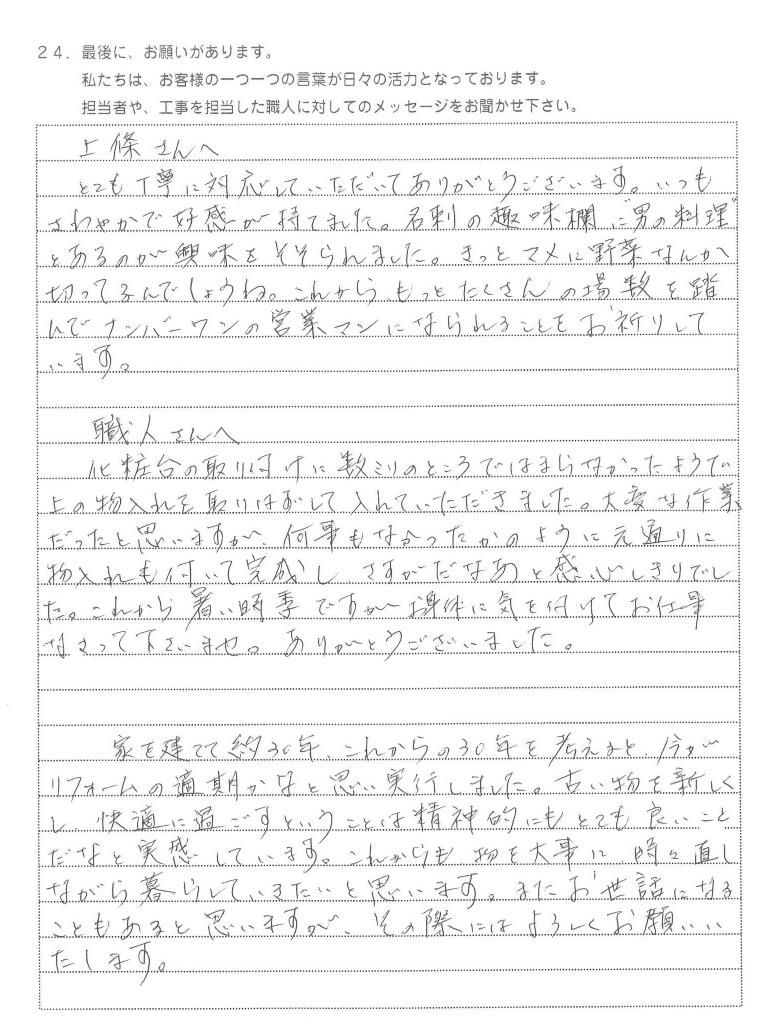 24．最後に、お願いがあります。
私たちは、お客様の一つ一つの言葉が日々の活力となっております。
担当者や、工事を担当した職人に対してのメッセージをお聞かせ下さい。
上條さんへ
とても丁寧に対応していただいてありがとうございます。いつも
さわやかで好感が持てました。名刺の趣味欄に"男の料理"
とあるのが興味をそそられました。きっとマメに野菜なんか
切ってるんでしょうね。これから、もっとたくさんの場数を踏
んでナンバーワンの営業マンになられることをお祈りして
います。
職人さんへ
化粧台の取り付けに数ミリのところではまらなかったようで
上の物入れを取りはずして入れていただきました。大変な作業
だったと思いますが、何事もなかったかのように元通りに
物入れも付いて完成し さすがだなあと感心しきりでし
た。これから暑い時季ですがお身体に気を付けてお仕事
なさって下さいませ。ありがとうございました。
家を建てて約30年、これからの30年を考えると、今が
リフォームの適期かなと思い実行しました。古い物を新しく
し、快適に過ごすということは精神的にもとても良いこと
だなと実感しています。これからも物を大事に、時々直し
ながら暮らしていきたいと思います。またお世話になる
こともあると思いますが、その際にはよろしくお願いい
たします。